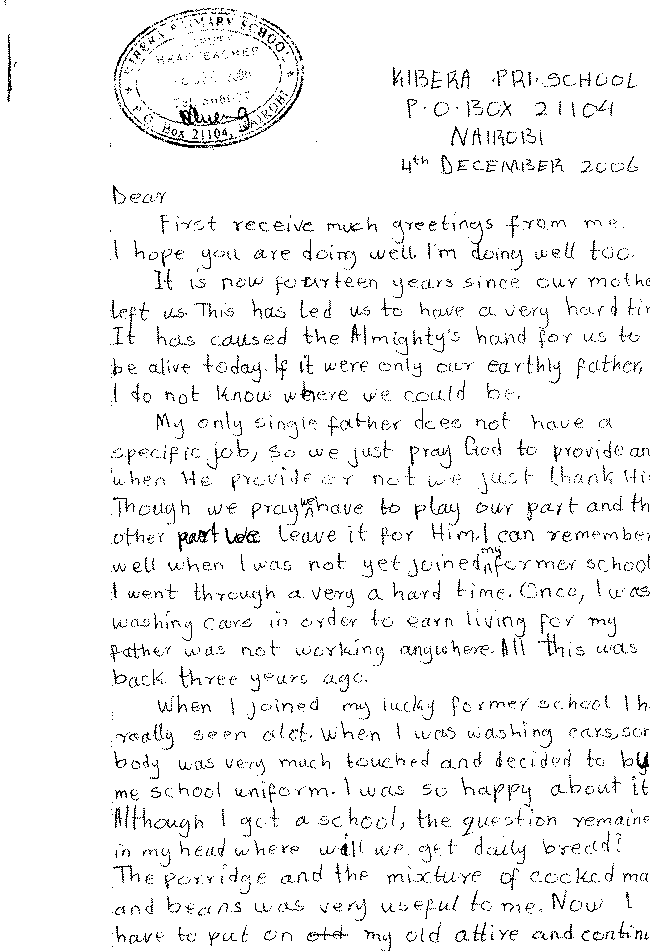 KIBERA PRIMARY SCHOOL
HEADTEACHER
P.O. Box 21104, NAIROBI
KIBERA PRI. SCHOOL
P.O. BOX 21104
NAIROBI
4th DECEMBER 2006
Dear
First receive much greetings from me.
I hope you are doing well. I'm doing well too.
It is now fourteen years since our mothe
left us. This has led us to have a very hard tir
It has caused the Almighty's hand for us to
be alive today. If it were only our earthly father,
I do not know where we could be.
My only single father does not have a
specific job, so we just pray God to provide an
when He provide or not we just thank Hi
Though we pray we have to play our part and th
other part we leave it for Him. I can remember
well when I was not yet joined my former school
I went through a very a hard time. Once, I was
washing cars in order to earn living for my
father was not working anywhere. All this was
back three years ago.
When I joined my lucky former school I h
really seen alot. When I was washing cars, som
body was very much touched and decided to by
me school uniform. I was so happy about it
Although I got a school, the question remaine
in my head where will we get daily bread?
The porridge and the mixture of cooked ma
and beans was very useful to me. Now I
have to put on old my old attire and continu